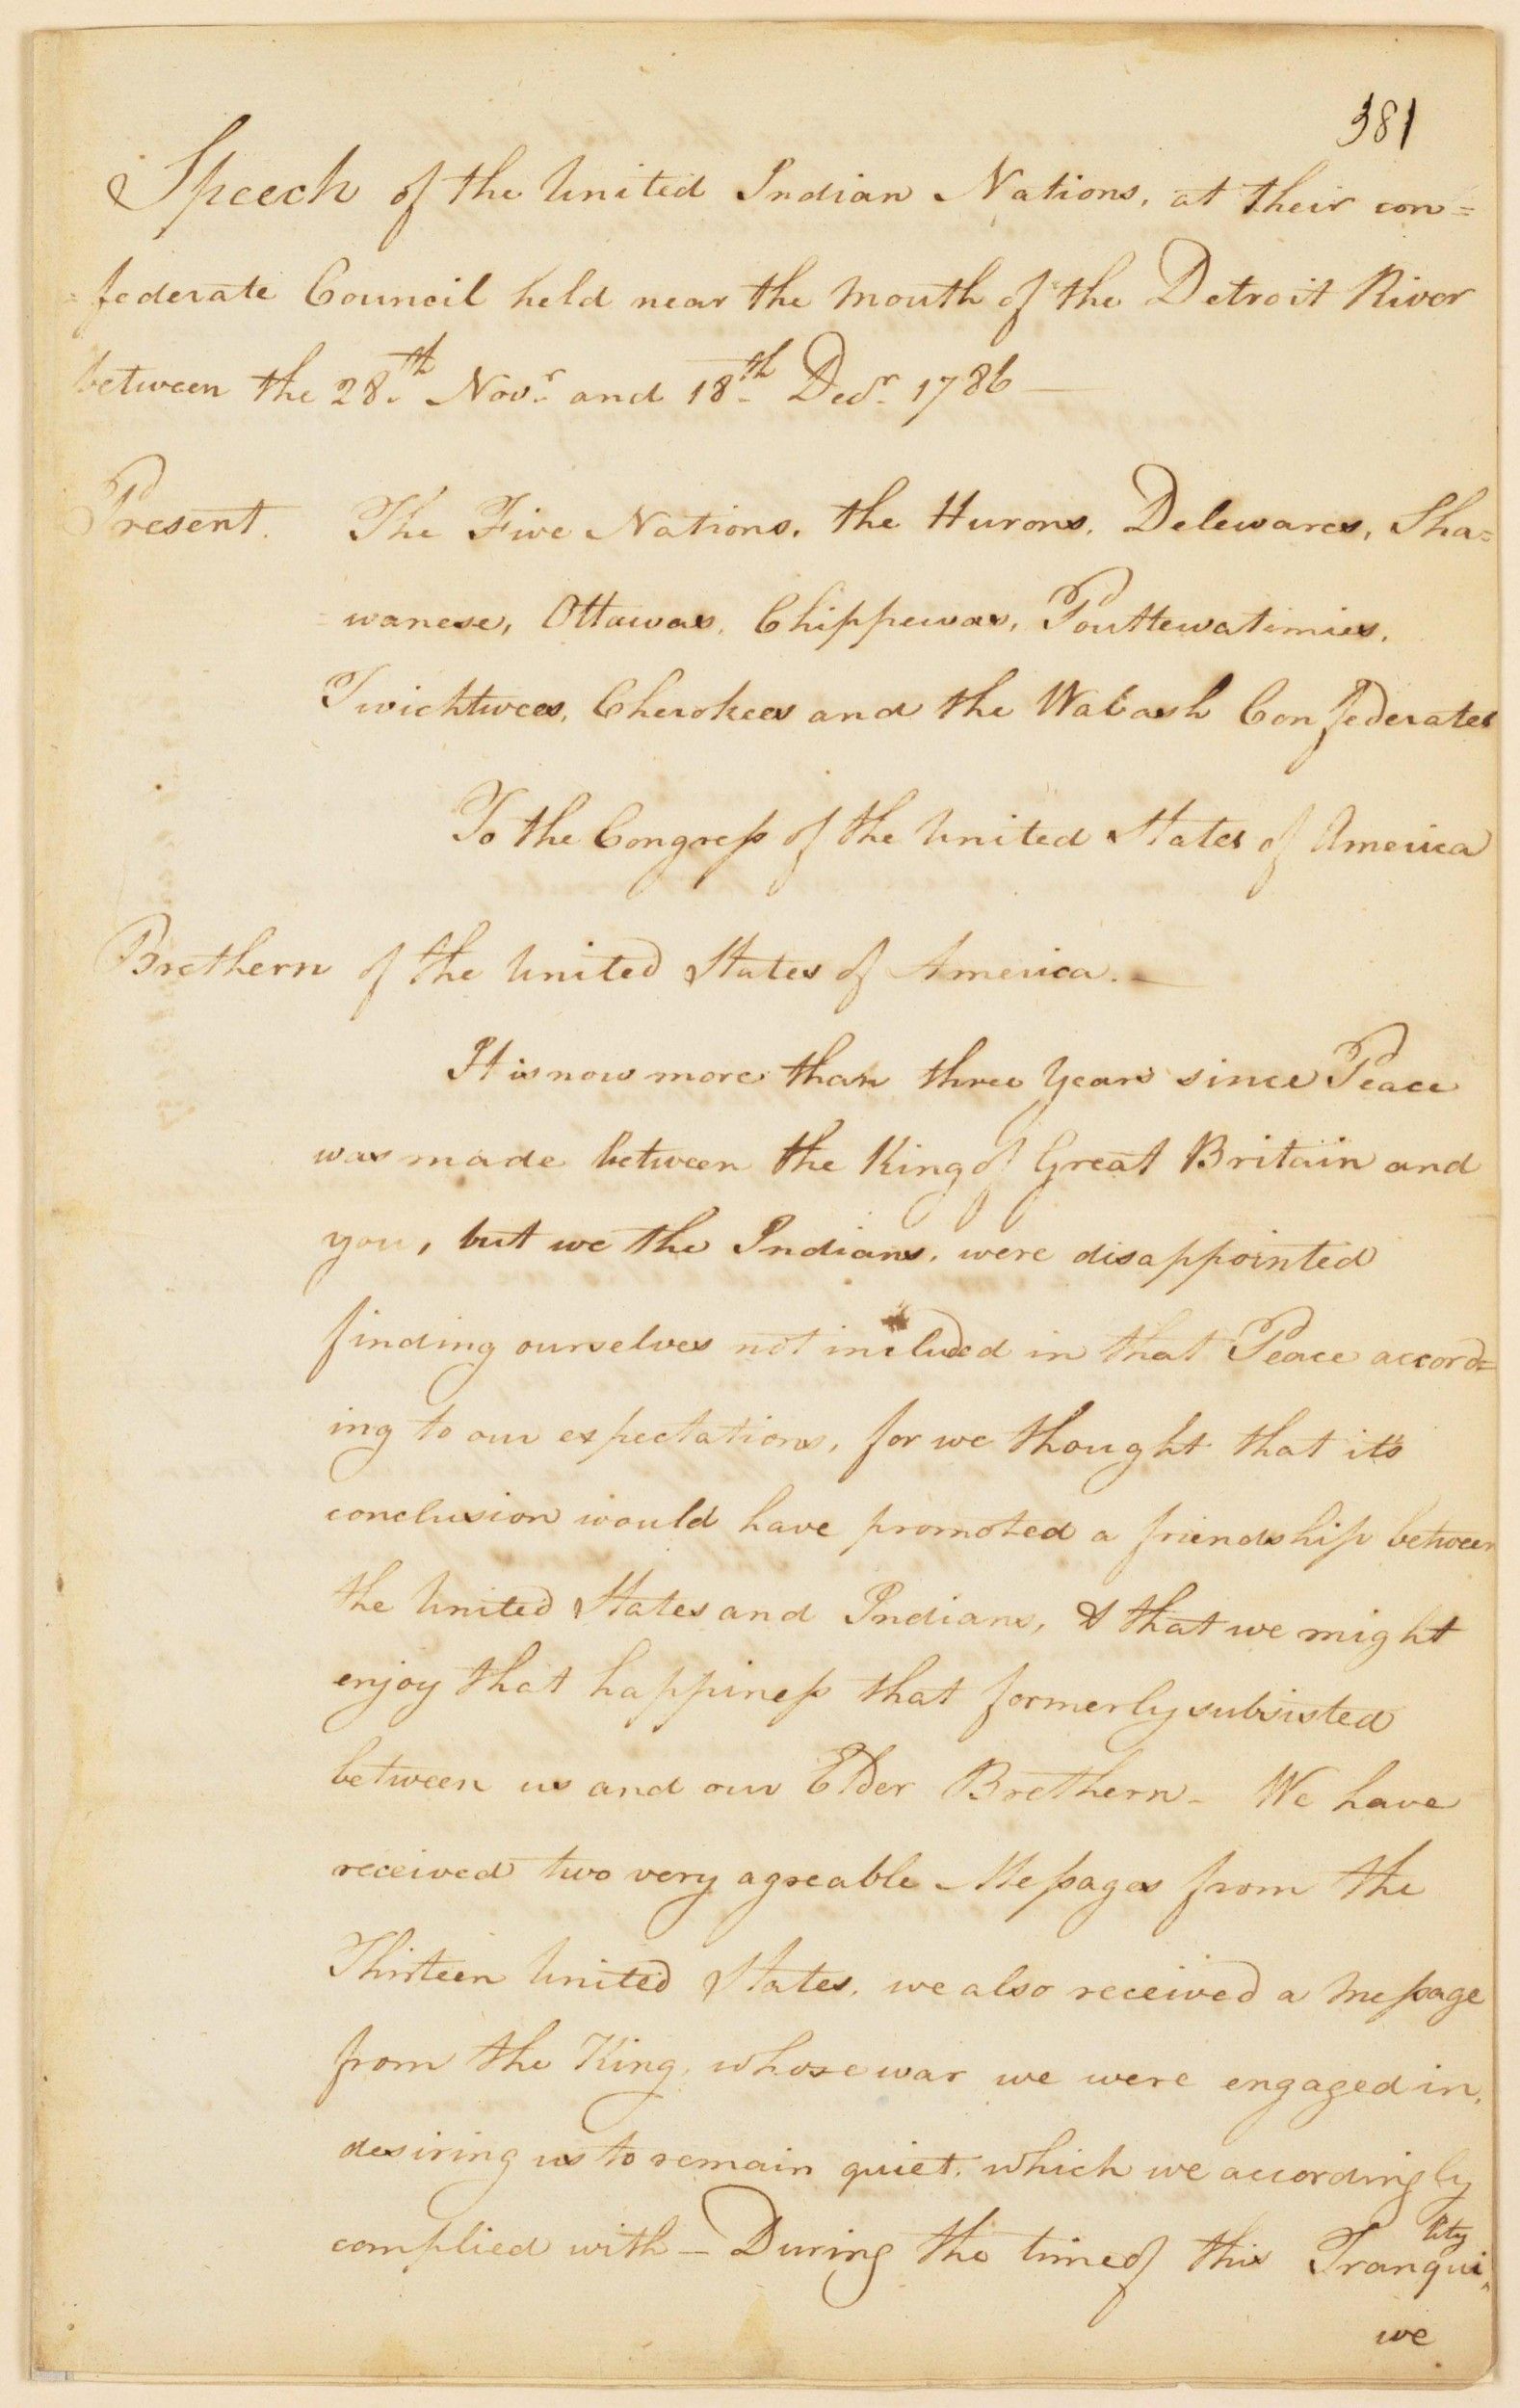 381
Speech of the United Indian Nations, at their con=
=federate Council held near the Mouth of the Detroit River
between the 28.th Novr. and 18.th Decr. 1786—
Present. The Five Nations, the Hurons, Delewares, Sha=
=wanese, Ottawas, Chippewas, Pouttewatimies,
Twichtwees, Cherokees and the Wabash Confederates
To the Congress of the United States of America
Brethern of the United States of America.—
It is now more than three Years since Peace
was made between the King of Great Britain and
you, but we the Indians, were disappointed
finding ourselves not included in that Peace accord=
ing to our expectations, for we thought that it's
conclusion would have promoted a friendship between
the United States and Indians, & that we might
enjoy that happiness that formerly subsisted
between us and our Elder Brethern- We have
received two very agreable Messages from the
Thirteen United States. we also received a Message
from the King, whose war we were engaged in,
desiring us to remain quiet, which we accordingly
complied with— During the time of this Tranquility
we